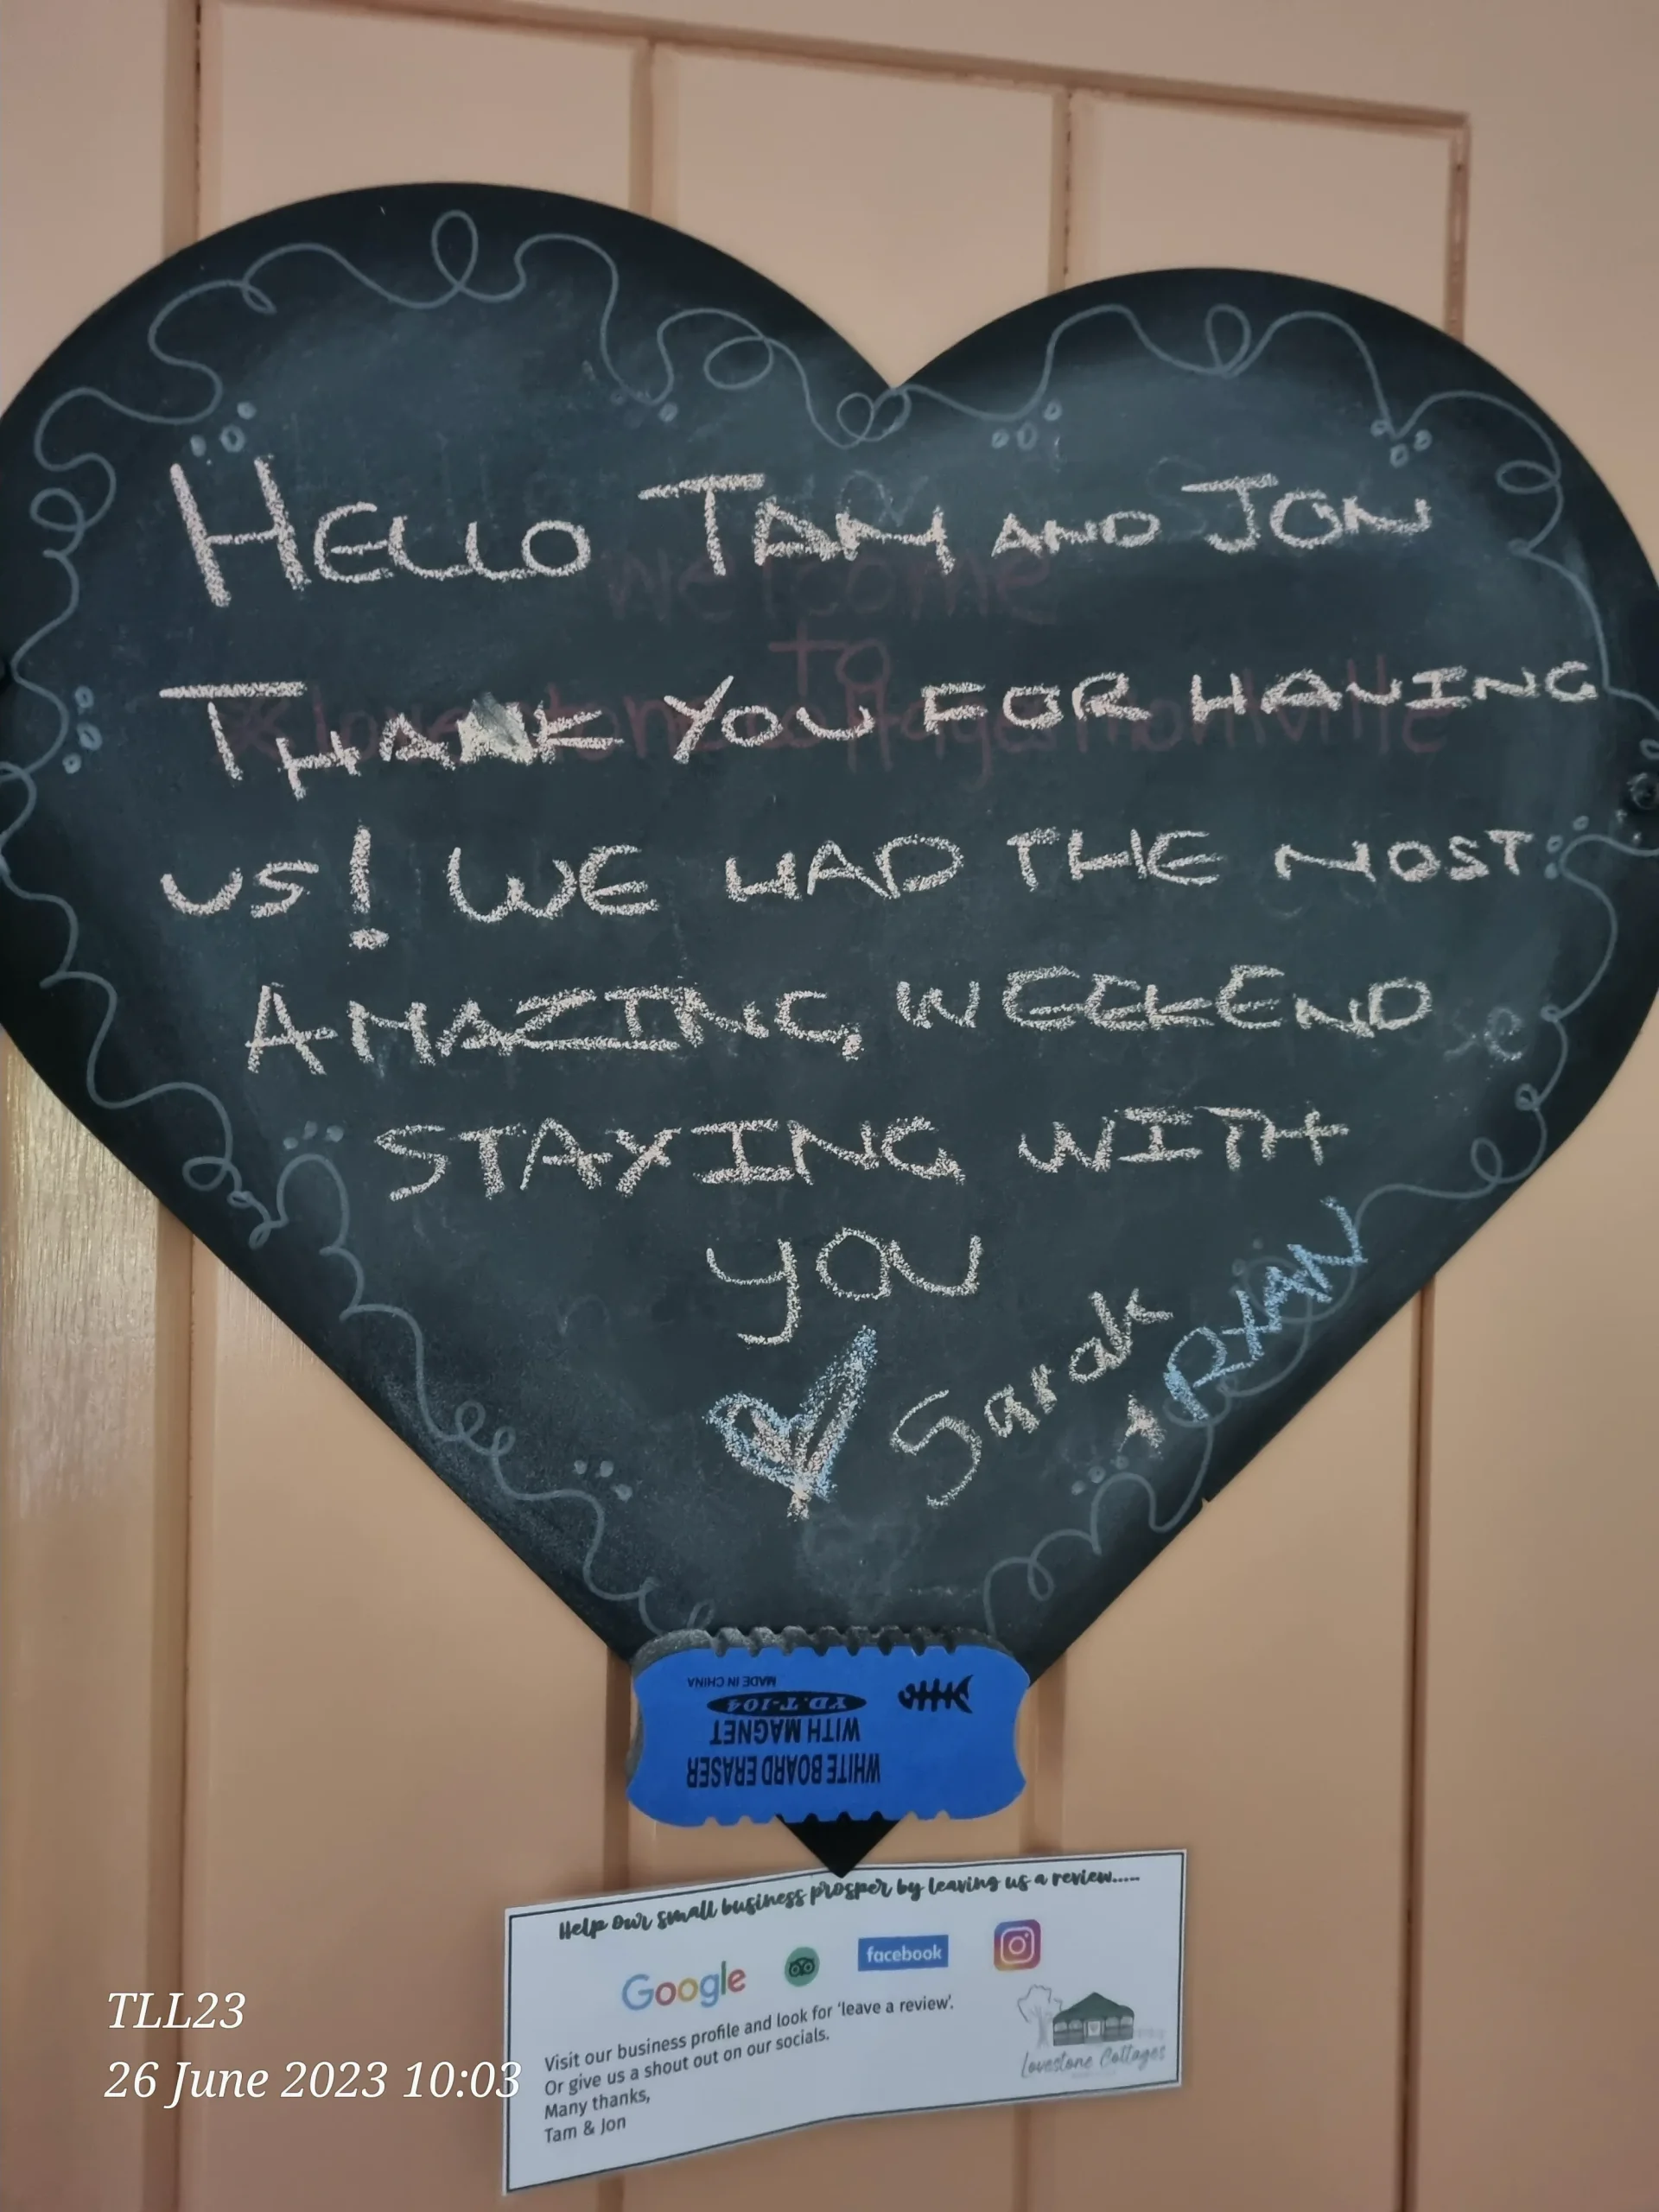 HELLO TAM AND JON
welcome
to
THANK YOU FOR HAVING
lovestone cottages montville
US! WE HAD THE MOST
AMAZING WEEKEND
STAYING WITH
YOU
Sarah
+ RYAN
WHITE BOARD ERASER
WITH MAGNET
YD.T-104
MADE IN CHINA
Help our small business prosper by leaving us a review.....
Google facebook
Visit our business profile and look for 'leave a review'.
Or give us a shout out on our socials.
Many thanks,
Tam & Jon
Lovestone Cottages
TLL23
26 June 2023 10:03